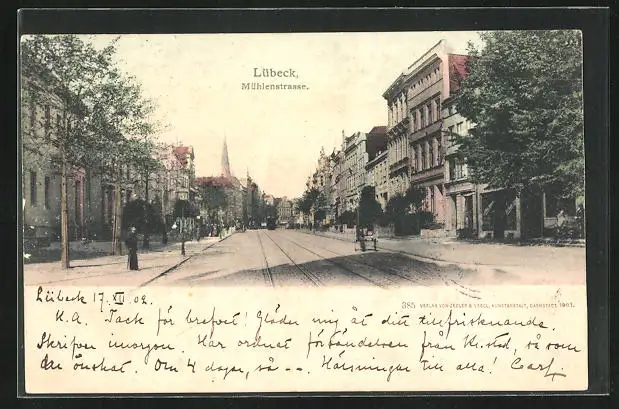 Lübeck,
Mühlenstrasse.
385 VERLAG VON ZEDLER & VOGEL, KUNSTANSTALT, DARMSTADT 1901.
Lübeck 17.XII 02.
K.A. Tack för brefvet! Gläder mig åt ditt tillfrisknande.
Skrifver imorgon. Har ordnat förbindelsen från
du önskat. Om 4 dagar, så -- . Hälsningar till alla! Carl.